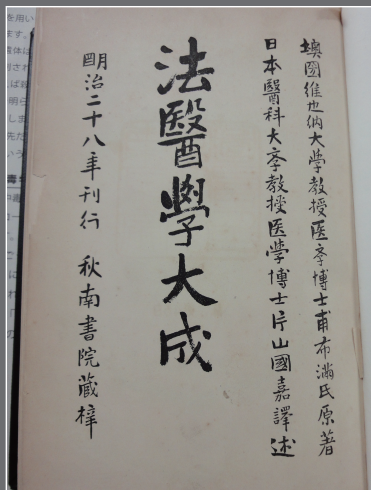 墺國維也納大学教授医学博士甫布満氏原著
日本醫科大学教授医学博士片山國嘉譯述
法醫學大成
明治二十八年刊行 秋南書院藏梓